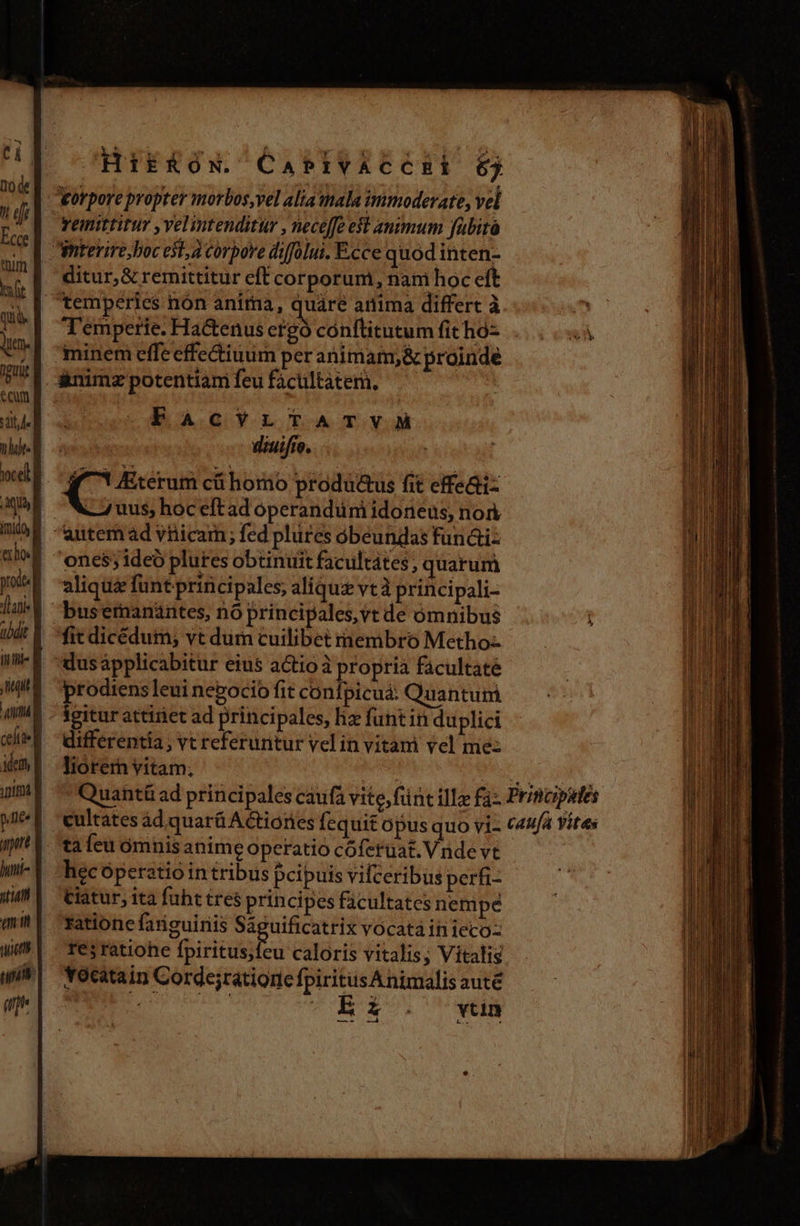 HIERON. CAPIVACCEI 67
corpore propter morbos, vel alia mala immoderate, vel
remittitur, vel intenditur, necesse est animum subito
interire, hoc est, à corpore dissolui. Ecce quod inten-
ditur, & remittitur est corporum, nam hoc est
temperies non anima, quare anima differt à
Temperie. Hactenus ergò constitutum sit ho-
minem esse effectiuum per animam, & proinde
animæ potentiam seu facultatem.
FACVLTATVM
diuisio.
CÆterum cū homo productus sit effecti-
uus, hoc est ad operandum idoneus, non
autem ad vnicam; sed plures obeundas functi-
ones; ideò plures obtinuit facultates, quarum
aliquæ sunt principales, aliquæ vt à principali-
bus emanantes, nō principales, vt de omnibus
sit dicēdum, vt dum cuilibet membro Metho-
dus applicabitur eius actio à propria facultate
prodiens leui negocio fit conspicua. Quantum
igitur attinet ad principales, hæ sunt in duplici
differentia, vt referuntur vel in vitam vel me-
liorem vitam.
Quantū ad principales causa vitę, sunt illæ fa-
Principales
causa vitæ
cultates ad quarū Actiones sequit opus quo vi-
ta seu omnis animę operatio cōseruat. Vnde vt
hęc operatio in tribus p̄cipuis visceribus perfi-
ciatur, ita sunt tres principes facultates nempe
ratione sanguinis Saguificatrix vocata in ieco-
re; ratione spiritus, seu caloris vitalis, Vitalis
vocata in Corde; ratione spiritus Animalis autē
E 2 vtin